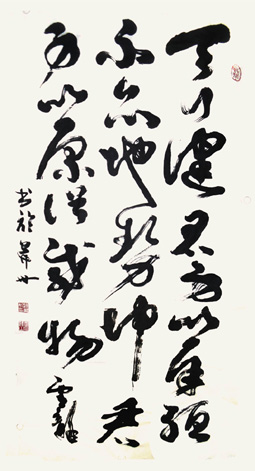 天行健君子以自强
不息地势坤君
子以厚德载物
书於